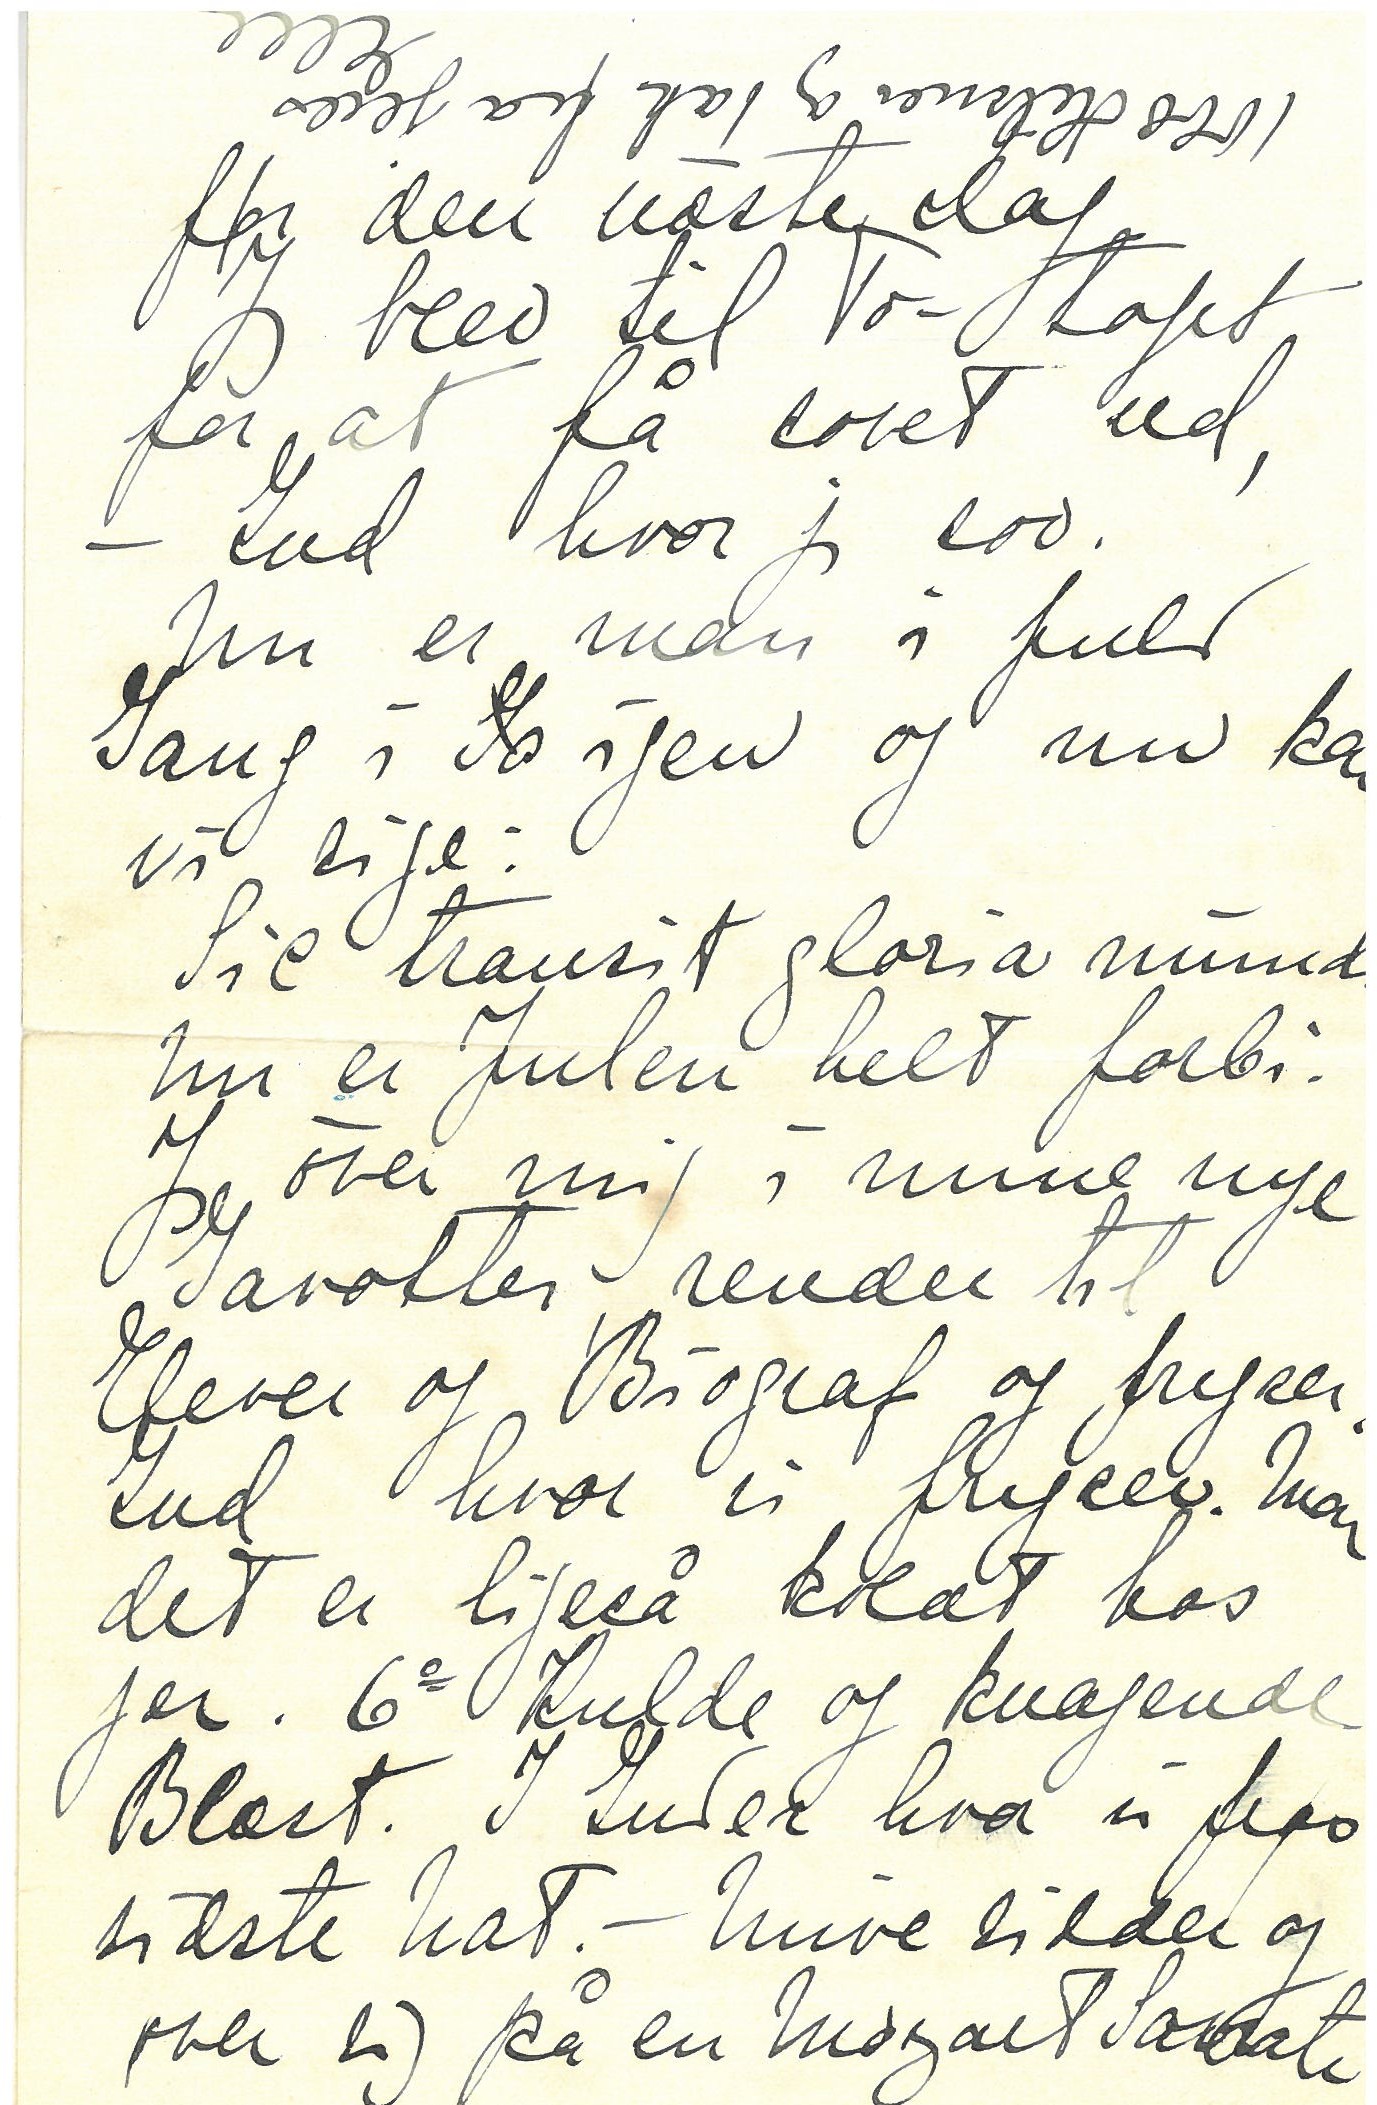 1000 Hilsner og Tak fra jeres
Elle
før den næste dag.
Jg blev til To-Toget
for at få sovet ud,
– Gud hvor jg sov.
Nu er man i fuld
Gang i Gs igen og nu kan
vi sige:
Sic transit gloria mundi
Nu er Julen helt forbi.
Jg över mig i mine nye
Gavotter, render til
Elever og Biograf og fryser.
Gud hvor vi fryser. Mon
det er ligeså koldt hos
jer. 6° Kulde og knagende
Blæst. I Guder hvor vi frøs
sidste Nat. – Muve sidder og
över sig på en Mozart Sonate